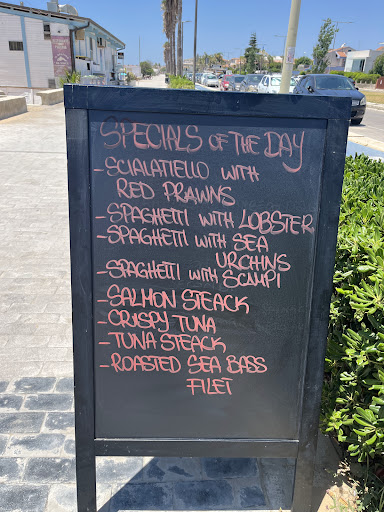 SPECIALS OF THE DAY
- SCIALATIELLO WITH
RED PRAWNS
- SPAGHETTI WITH LOBSTER
- SPAGHETTI WITH SEA
URCHINS
- SPAGHETTI WITH SCAMPI
- SALMON STEACK
- CRISPY TUNA
- TUNA STEACK
- ROASTED SEA BASS
FILET